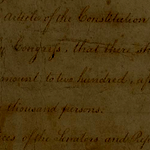 article of the Constitution
Congress, that there sh
amount to two hundred, af
thousand persons.
of the Senators and Rep